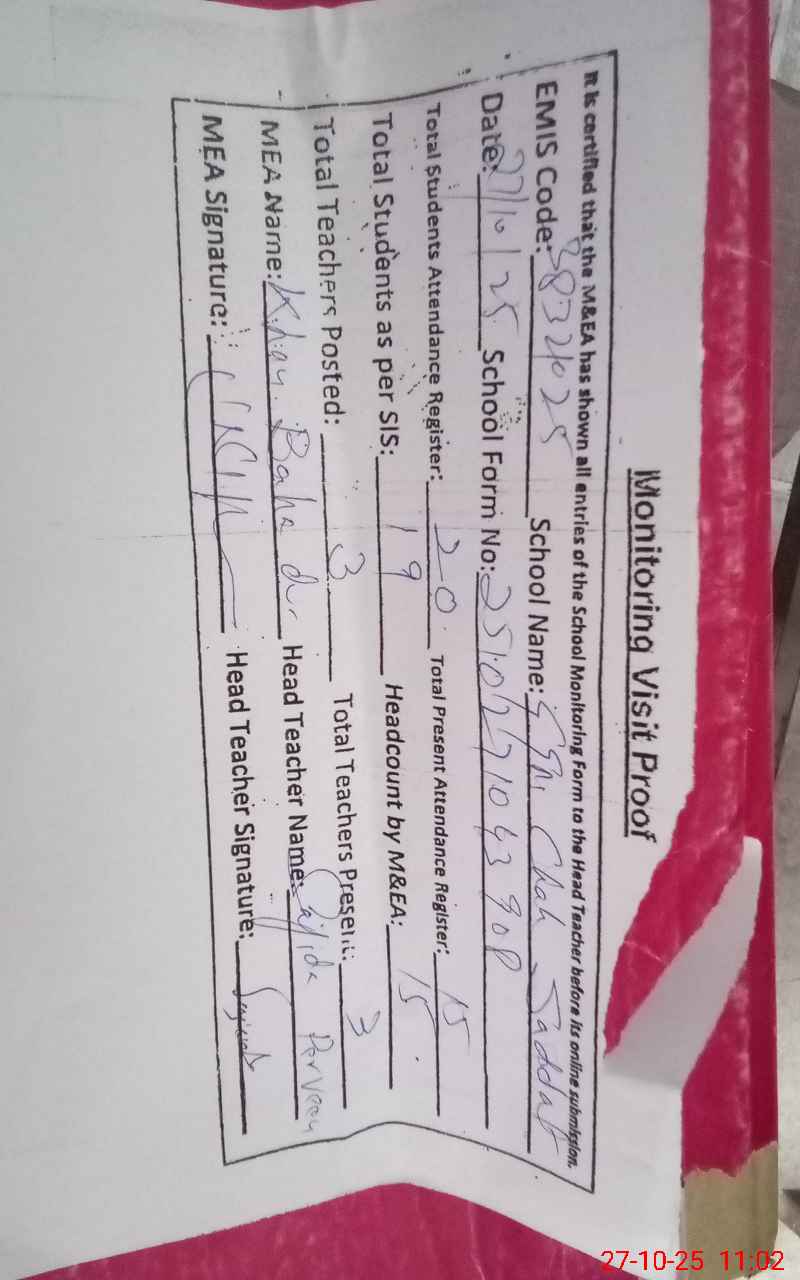 Monitoring Visit Proof
It is certified that the M&EA has shown all entries of the School Monitoring Form to the Head Teacher before its online submission.
EMIS Code: 38324025 School Name: Chah Saddat
Date: 27/10/25 School Form No:
Total Students Attendance Register: 20 Total Present Attendance Register: 15
Total Students as per SIS: 19 Headcount by M&EA: 15
Total Teachers Posted: 3 Total Teachers Present: 3
MEA Name: Bahadur Head Teacher Name: Sajida Parveen
MEA Signature: Head Teacher Signature:
27-10-25 11:02